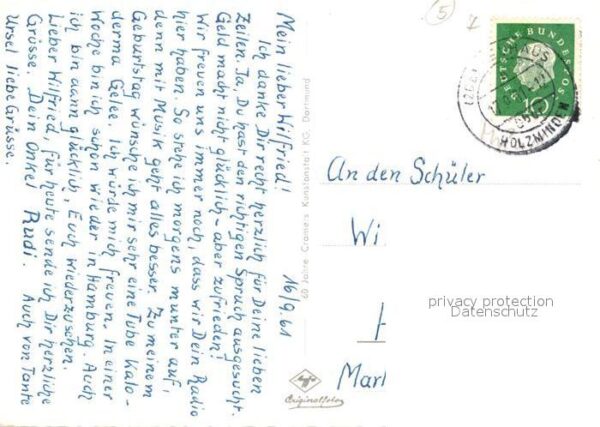 16/9.61
Mein lieber Wilfried!
Ich danke Dir recht herzlich für Deine lieben
Zeilen. Ja, Du hast den richtigen Spruch ausgesucht.
Geld macht nicht glücklich - aber zufrieden!
Wir freuen uns immer noch, dass wir Dein Radio
hier haben. So stehe ich morgens munter auf,
denn mit Musik geht alles besser. Zu meinem
Geburtstag wünsche ich mir sehr eine Tube Kalo-
derma Gelee. Ich würde mich freuen. In einer
Woche bin ich schon wieder in Hamburg. Auch
ich bin dann glücklich, Euch wiederzusehen.
Lieber Wilfried, für heute sende ich Dir herzliche
Grüsse. Dein Onkel Rudi. Auch von Tante
Ursel liebe Grüsse.
60 Jahre Cramers Kunstanstalt KG. Dortmund
Agfa
Originalfoto
5
DEUTSCHE BUNDESPOST
10
HOLZMINDEN
An den Schüler
Wi
Mar
privacy protection
Datenschutz